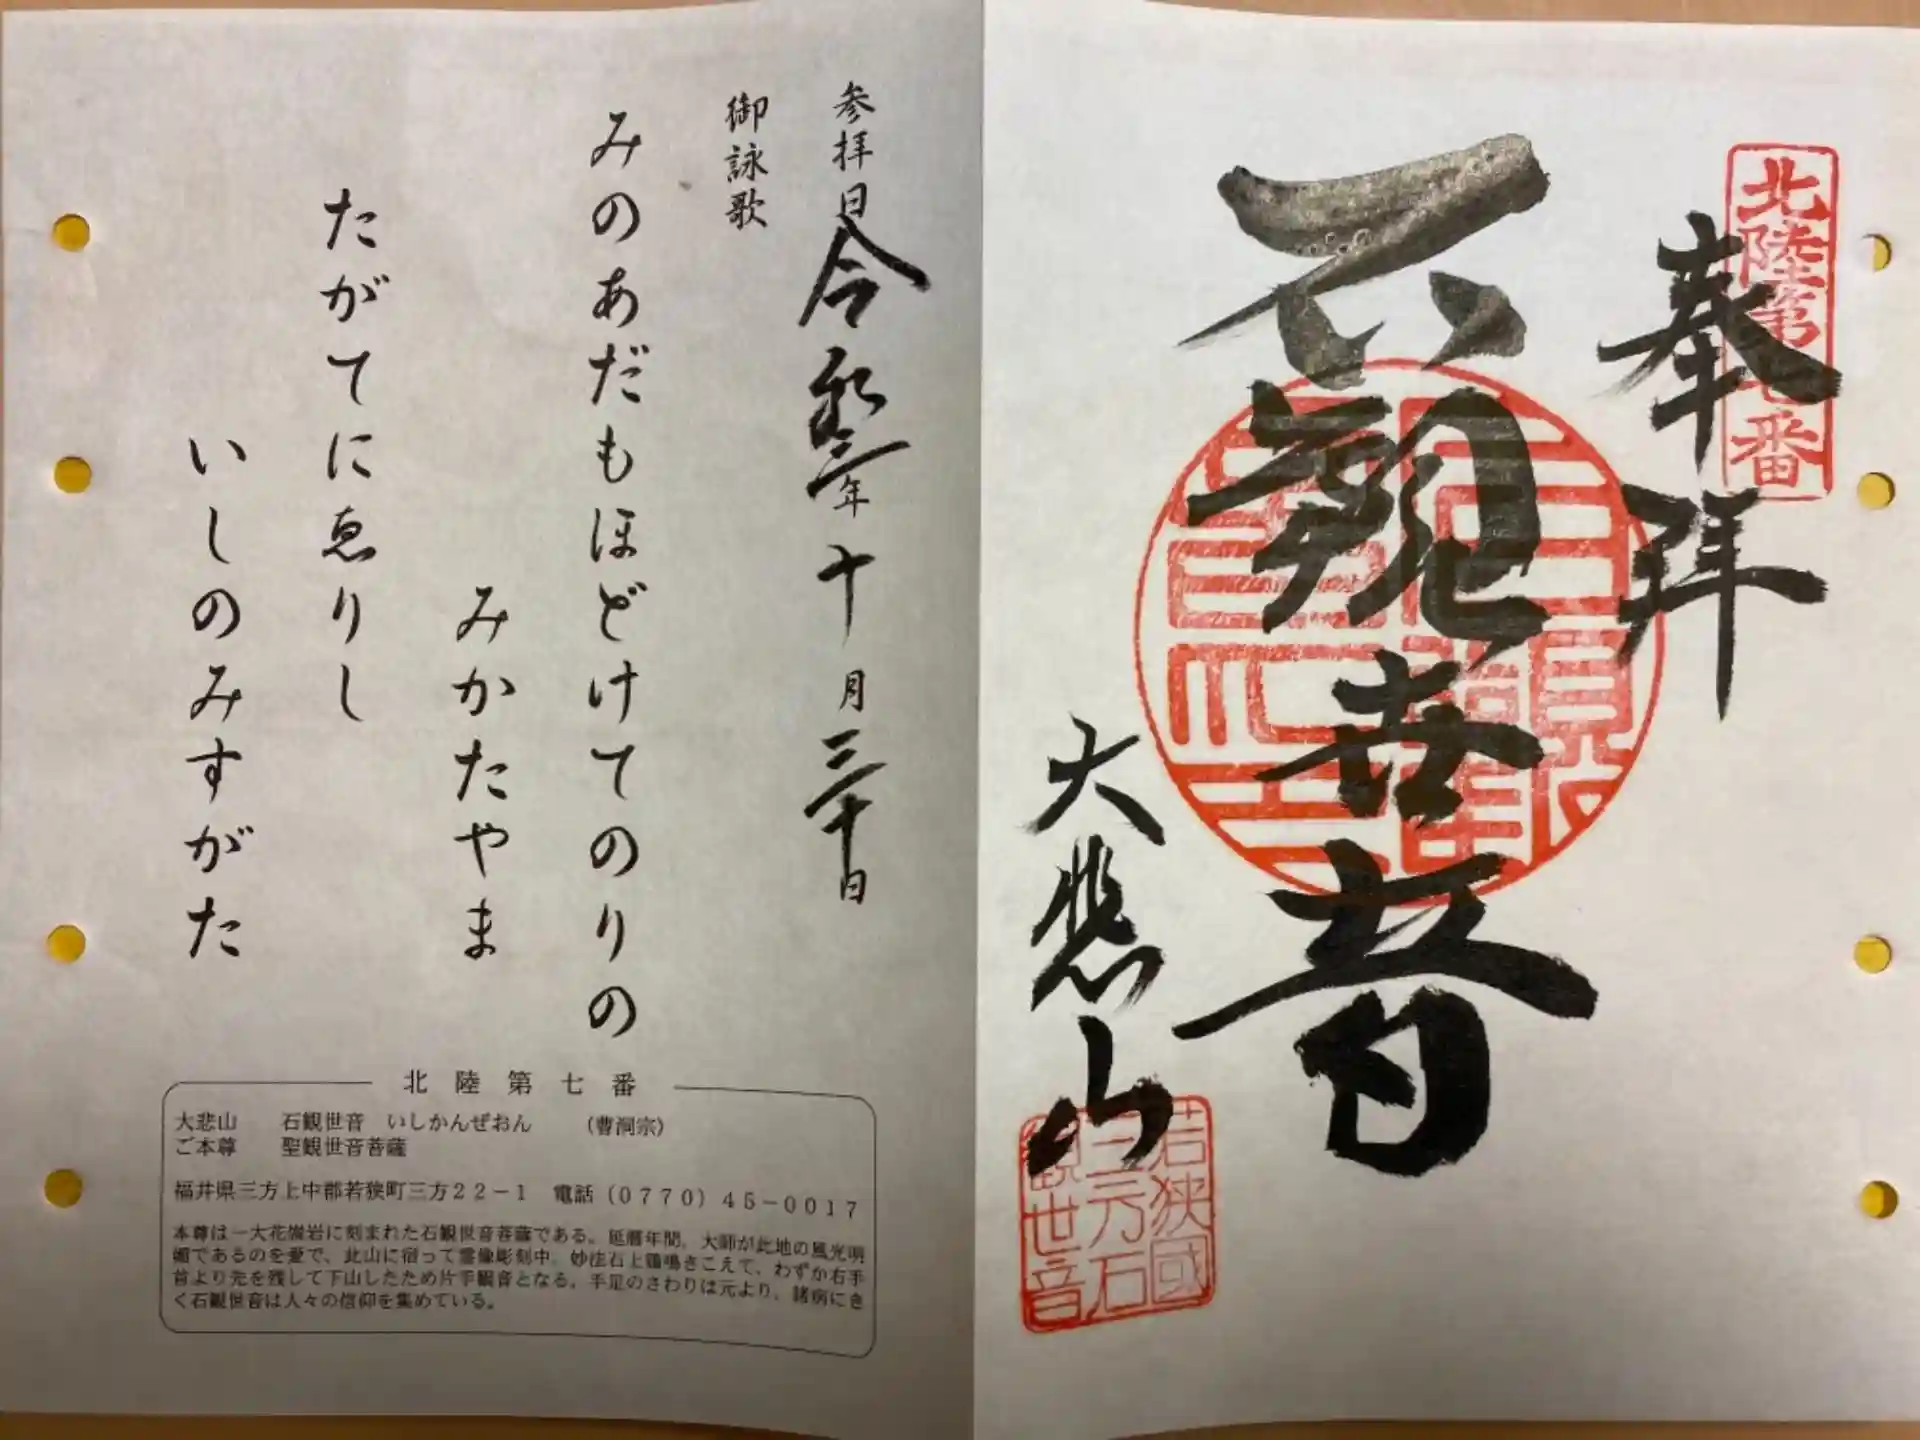 北陸第七番
奉拜
石観世音
大悲山
若狭國
三方石
観世音
参拝日 令和三年十月三十日
御詠歌
みのあだもほどけてのりの
みかたやま
たがてにゑりし
いしのみすがた
北陸第七番
大悲山 石観世音 いしかんぜおん (曹洞宗)
ご本尊 聖観世音菩薩
福井県三方上中郡若狭町三方22-1 電話(0770)45-0017
本尊は一大花崗岩に刻まれた石観世音菩薩である。延暦年間、大師が此地の風光明
媚であるのを愛で、此山に宿って霊像彫刻中、妙法石上鶏鳴きこえて、わずか右手
首より先を残して下山したため片手観音となる。手足のさわりは元より、諸病にき
く石観世音は人々の信仰を集めている。